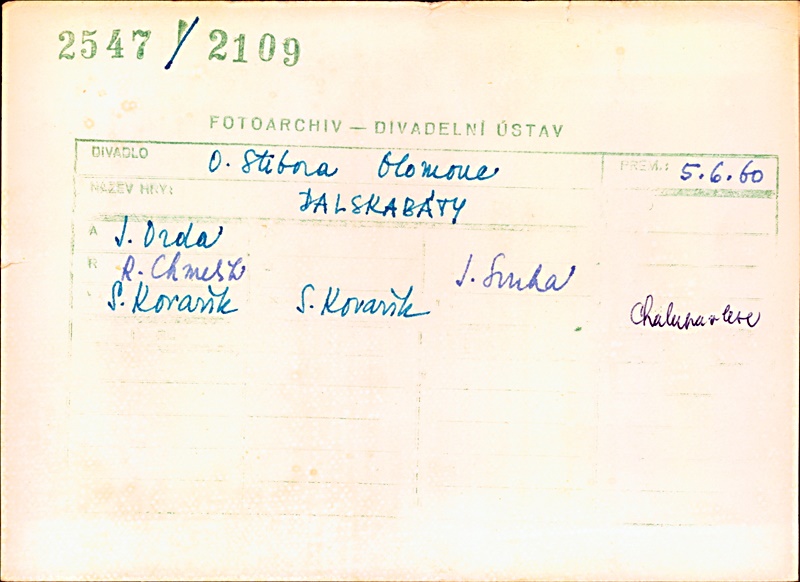 2547/2109
FOTOARCHIV — DIVADELNÍ ÚSTAV
DIVADLO O. Stibora Olomouc PREM.: 5.6.60
NÁZEV HRY: DALSKABÁTY
A J. Drda
R R. Chmelík
S. Kovařík S. Kovařík